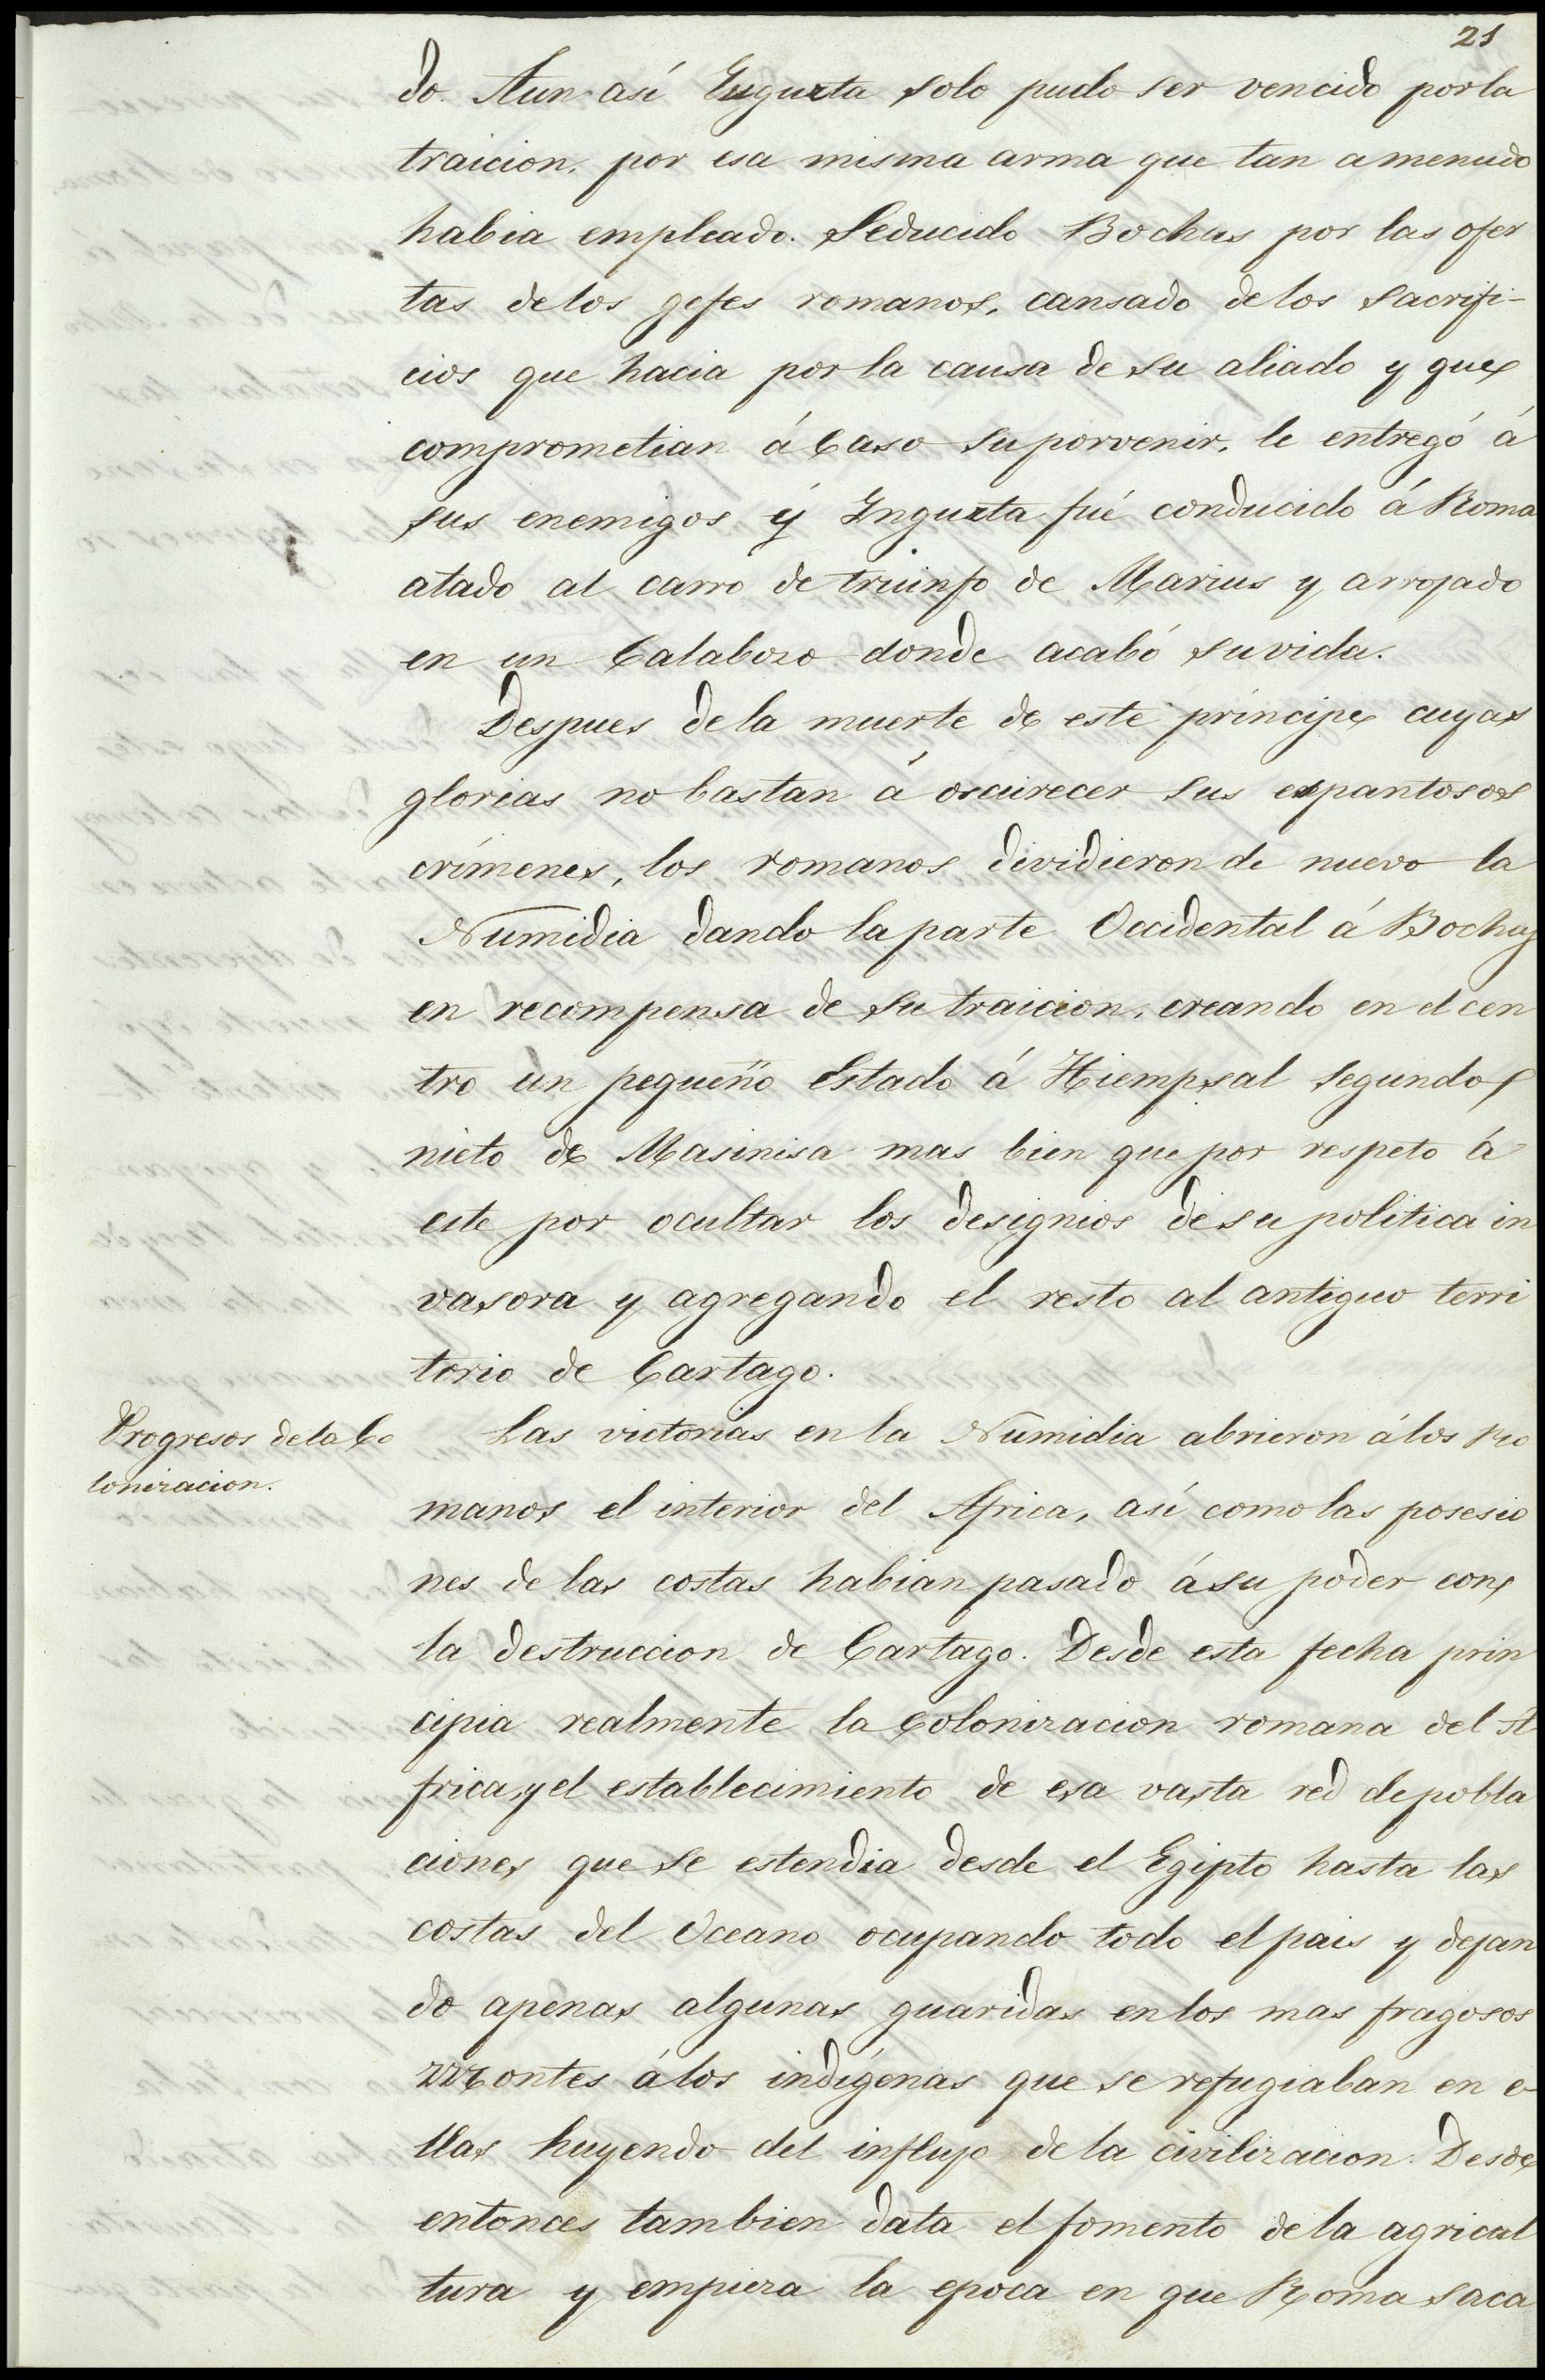 21
do. Aun así Yugurta solo pudo ser vencido por la
traicion, por esa misma arma que tan a menudo
habia empleado. Seducido Bochus por las ofer
tas de los gefes romanos, cansado de los sacrifi-
cios que hacia por la causa de su aliado y que
comprometian á caso su porvenir, le entregó á
sus enemigos y Yugurta fué conducido á Roma
atado al carro de triunfo de Marius y arrojado
en un Calabozo donde acabó su vida.
Despues de la muerte de este príncipe cuyas
glorias no bastan á oscurecer sus espantosos
crímenes, los romanos dividieron de nuevo la
Numidia dando la parte Occidental á Bochus
en recompensa de su traicion, creando en el cen
tro un pequeño Estado á Hiempsal segundo
nieto de Masinisa mas bien que por respeto á
este por ocultar los designios de su politica in
vasora y agregando el resto al antiguo terri
torio de Cartago.
Progresos de la Co
lonizacion.
Las victorias en la Numidia abrieron á los Ro
manos el interior del Africa, así como las posesio
nes de las costas habian pasado á su poder con
la destruccion de Cartago. Desde esta fecha prin
cipia realmente la Colonizacion romana del A
frica, y el establecimiento de esa vasta red de pobla
ciones que se estendia desde el Egipto hasta las
costas del Oceano ocupando todo el pais y dejan
do apenas algunas guaridas en los mas fragosos
montes á los indígenas que se refugiaban en e-
llas huyendo del influjo de la civilizacion. Desde
entonces tambien data el fomento de la agricul
tura y empieza la epoca en que Roma saca